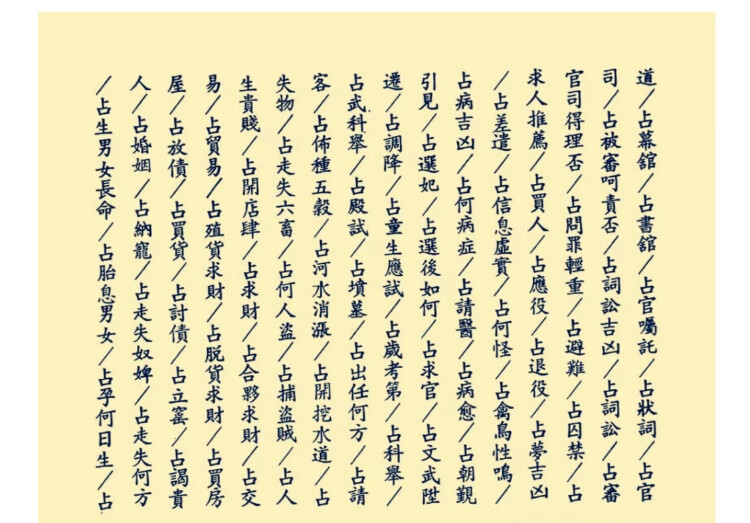 道/占幕舘/占書舘/占官囑託/占狀詞/占官
司/占被審呵責否/占詞訟吉凶/占詞訟/占審
官司得理否/占問罪輕重/占避難/占囚禁/占
求人推薦/占買人/占應役/占退役/占夢吉凶
/占差遣/占信息虛實/占何怪/占禽鳥性鳴/
占病吉凶/占何病症/占請醫/占病愈/占朝覲
引見/占選妃/占選後如何/占求官/占文武陞
遷/占調降/占童生應試/占歲考第/占科舉/
占武科舉/占殿試/占墳墓/占出任何方/占請
客/占佈種五穀/占河水消漲/占開挖水道/占
失物/占走失六畜/占何人盜/占捕盜賊/占人
生貴賤/占開店肆/占求財/占合夥求財/占交
易/占貿易/占殖貨求財/占脫貨求財/占買房
屋/占放債/占買貨/占討債/占立窰/占謁貴
人/占婚姻/占納寵/占走失奴婢/占走失何方
/占生男女長命/占胎息男女/占孕何日生/占